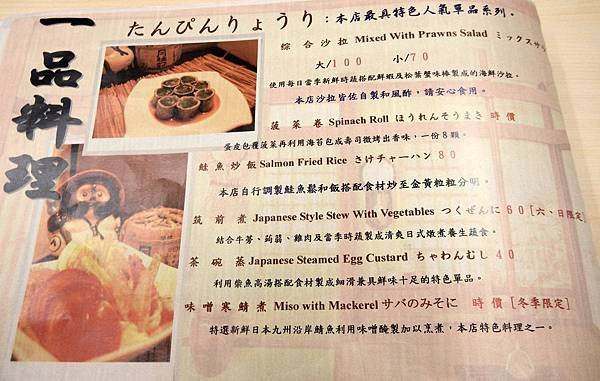 一品料理
たんぴんりょうり:本店最具特色人氣單品系列。
綜合沙拉 Mixed With Prawns Salad ミックスサラ
大/100 小/70
使用每日當季新鮮時蔬搭配鮮蝦及松葉蟹味棒製成的海鮮沙拉。
本店沙拉皆佐自製和風酢,請安心食用。
菠菜卷 Spinach Roll ほうれんそうまき 時價
蛋皮包覆菠菜再利用海苔包成壽司微烤出香味,一份8顆。
鮭魚炒飯 Salmon Fried Rice さけチャーハン 80
本店自行調製鮭魚鬆和飯搭配食材炒至金黃粒粒分明。
筑前煮 Japanese Style Stew With Vegetables つくぜんに 60[六、日限定]
結合牛蒡、蒟蒻、雞肉及當季時蔬製成清爽日式燉煮養生蔬食。
茶碗蒸 Japanese Steamed Egg Custard ちゃわんむし 40
利用柴魚高湯搭配食材製成細滑兼具鮮味十足的特色單品。
味噌寒鯖煮 Miso with Mackerel サバのみそに 時價[冬季限定]
特選新鮮日本九州沿岸鯖魚利用味噌醃製加以烹煮,本店特色料理之一。